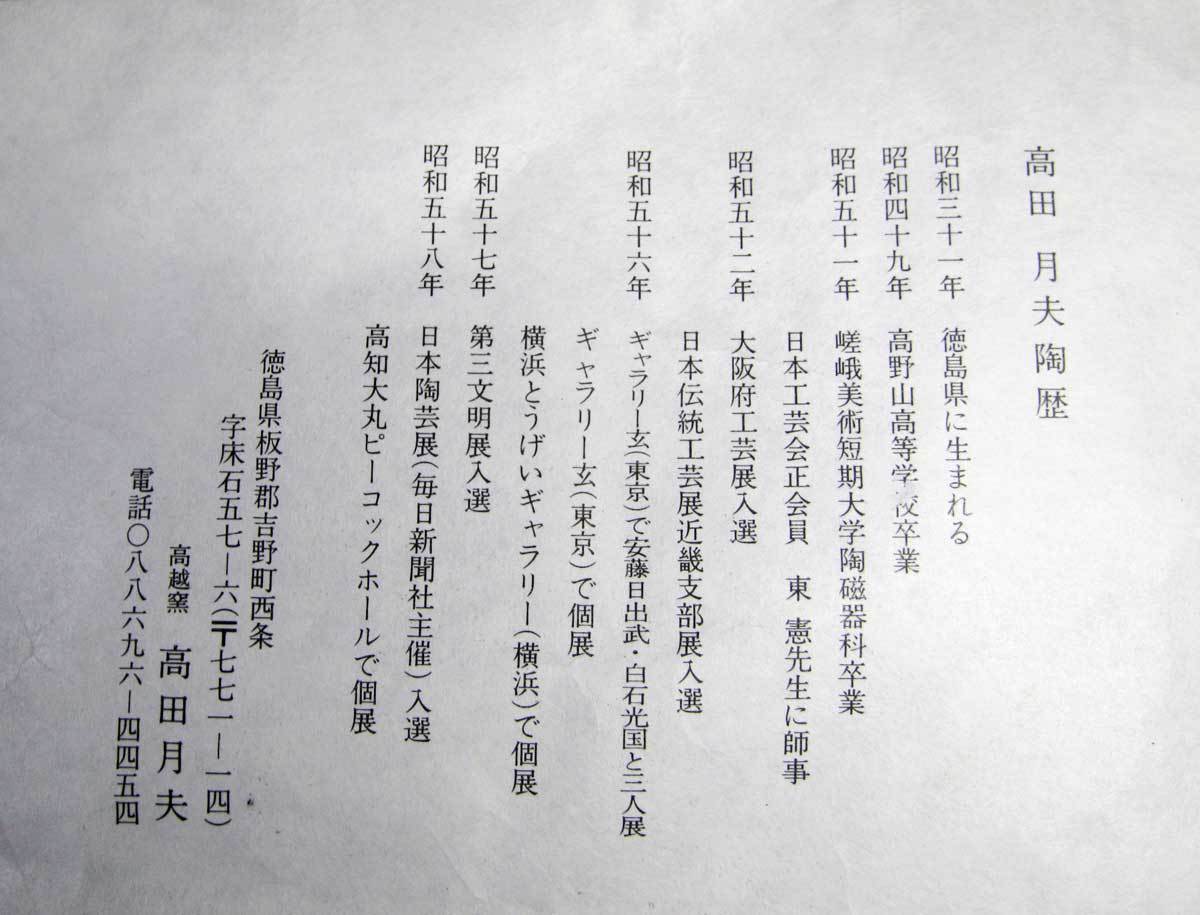 高田 月夫陶歴
昭和三十一年 徳島県に生まれる
昭和四十九年 高野山高等学校卒業
昭和五十一年 嵯峨美術短期大学陶磁器科卒業
日本工芸会正会員 東 憲先生に師事
昭和五十二年 大阪府工芸展入選
日本伝統工芸展近畿支部展入選
昭和五十六年 ギャラリー玄(東京)で安藤日出武・白石光国と三人展
ギャラリー玄(東京)で個展
横浜とうげいギャラリー(横浜)で個展
昭和五十七年 第三文明展入選
昭和五十八年 日本陶芸展(毎日新聞社主催)入選
高知大丸ピーコックホールで個展
徳島県板野郡吉野町西条
字床石五七―六(〒七七一―一四)
高越窯 高田月夫
電話〇八八六九六―四四五四